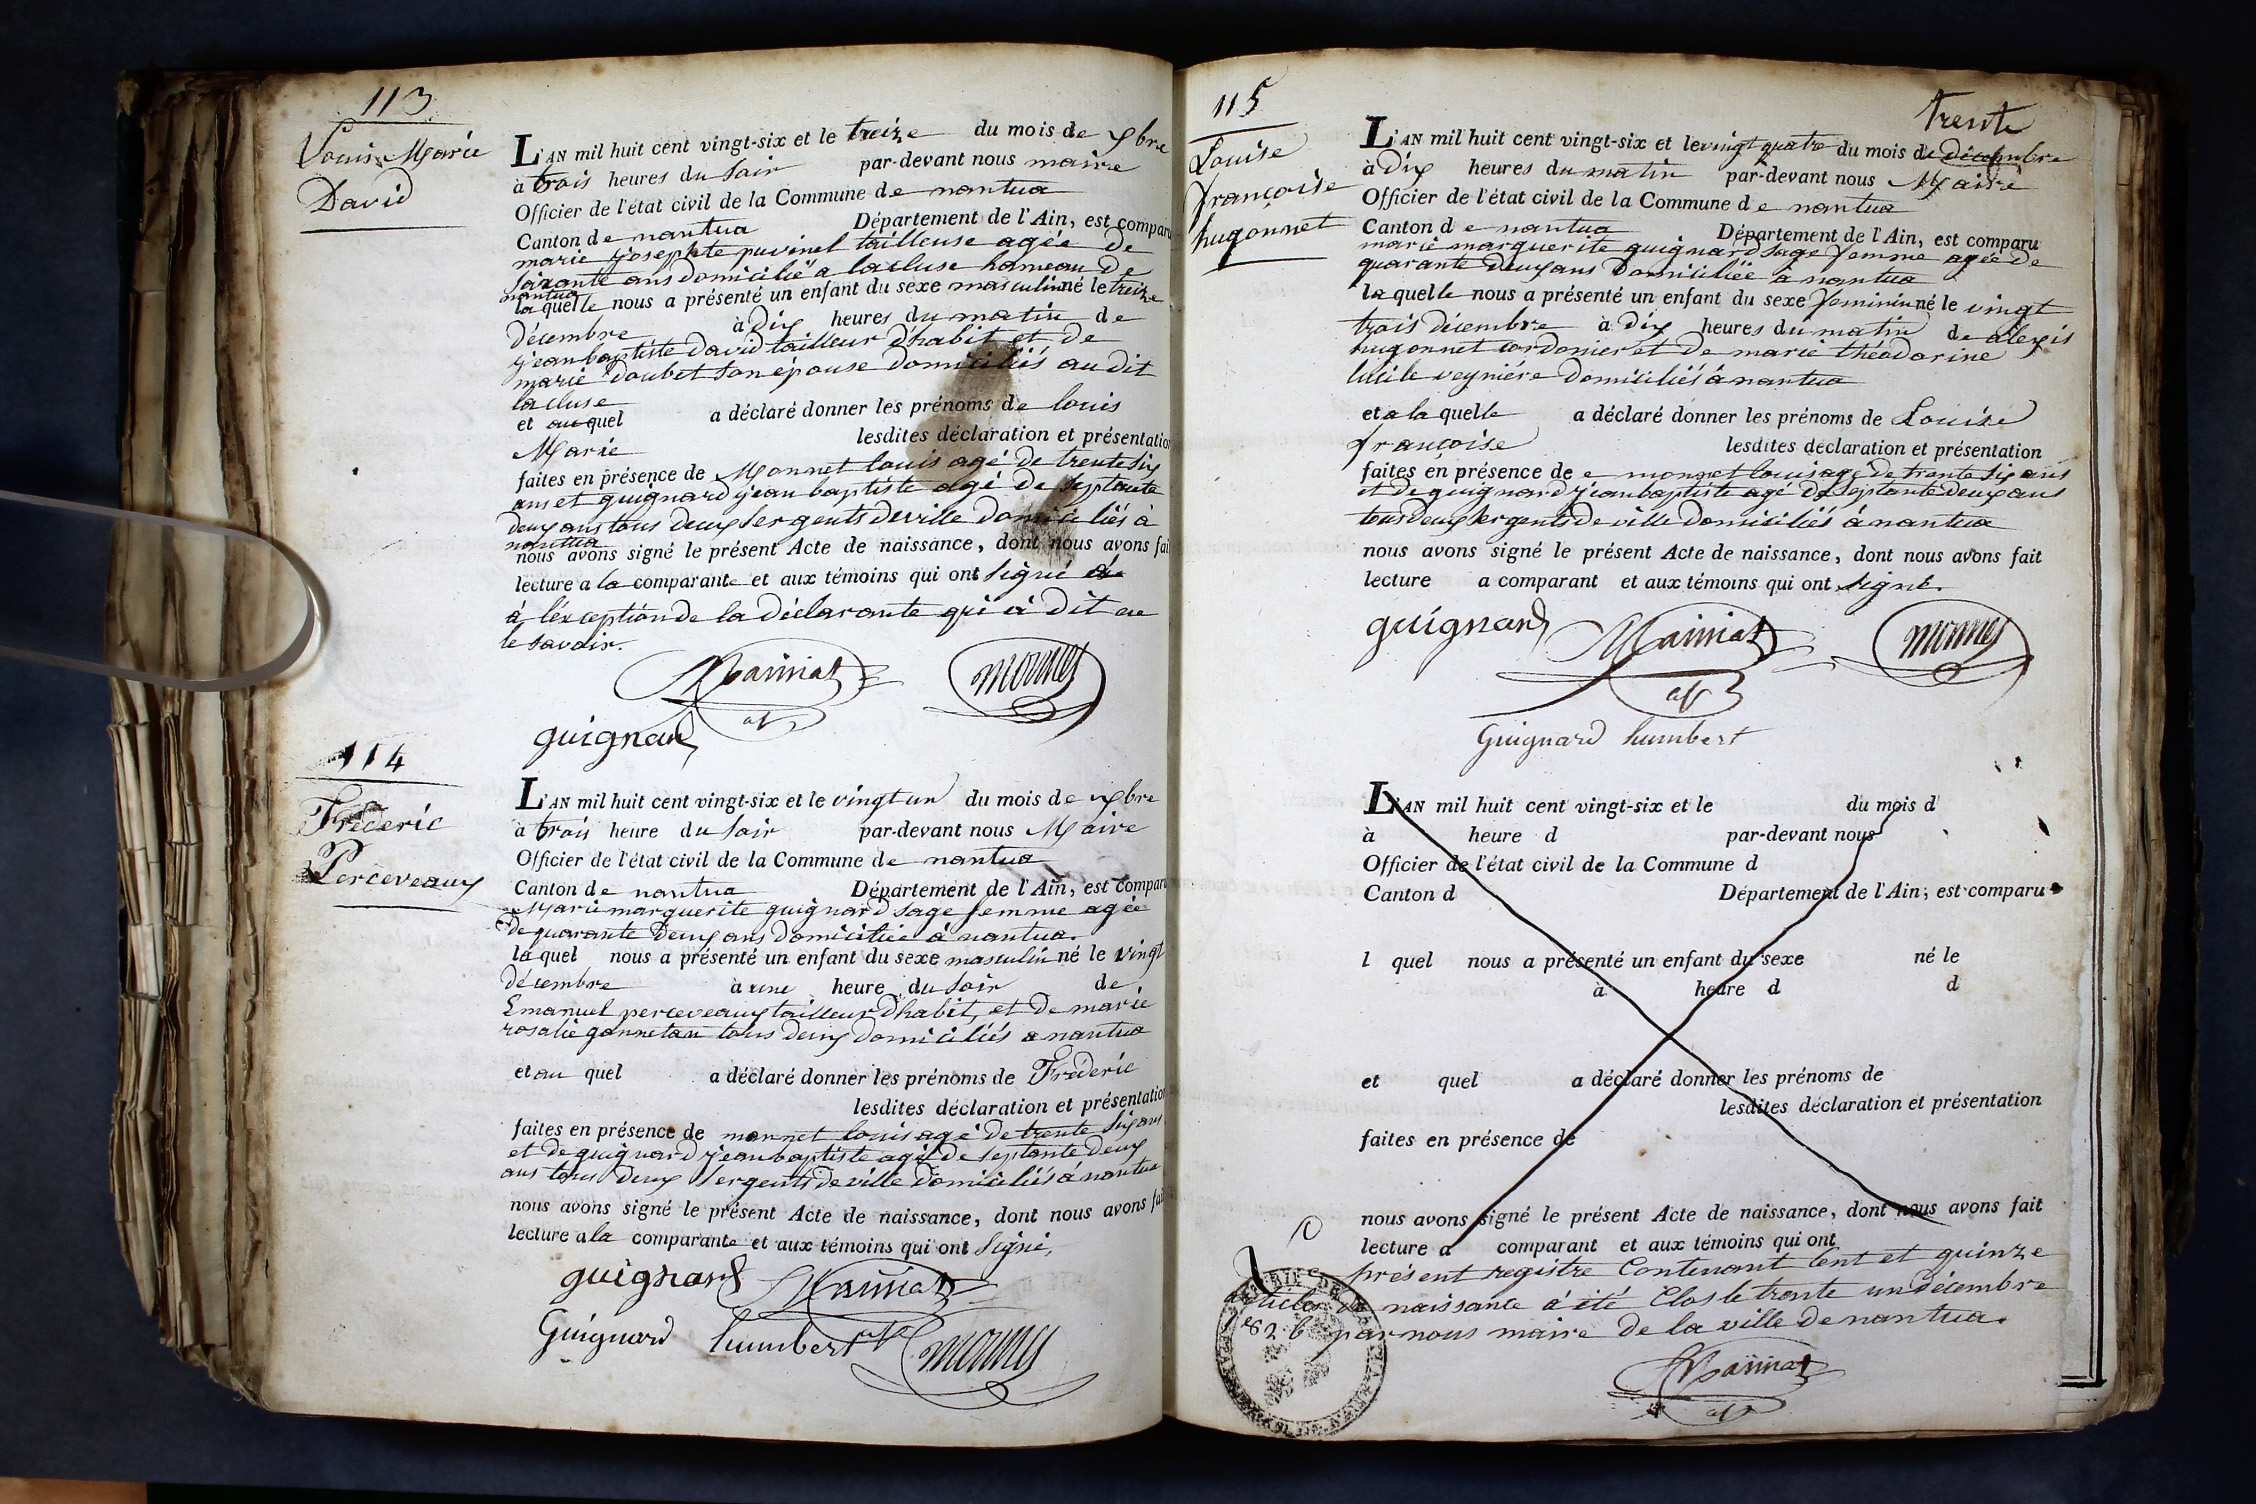 113
Louis Marie
David
L'AN mil huit cent vingt-six et le treize du mois de xbre
à trois heures du soir par-devant nous maire
Officier de l'état civil de la Commune de nantua
Canton de nantua Département de l'Ain, est comparu
marie josephte puvinel tailleuse agée de
soixante ans domiciliée a lacluse hameau de
nantua
laquelle nous a présenté un enfant du sexe masculin né le treize
décembre à dix heures du matin de
jean baptiste david tailleur d'habit et de
marie doubet son épouse domiciliés au dit
lacluse
et auquel a déclaré donner les prénoms de louis
Marie lesdites déclaration et présentation
faites en présence de Monnet louis agé de trente six
ans et guignard jean baptiste agé de septante
deux ans tous deux sergents de ville domiciliés à
nantua
nous avons signé le présent Acte de naissance, dont nous avons fait
lecture a la comparante et aux témoins qui ont signé
à l'exception de la déclarante qui a dit ne
le savoir.
monnet
guignard
114
Fréderic
Perceveaux
L'AN mil huit cent vingt-six et le vingt un du mois de xbre
à trois heure du soir par-devant nous Maire
Officier de l'état civil de la Commune de nantua
Canton de nantua Département de l'Ain, est comparu
Marie marguerite guignard sage femme agée
de quarante deux ans domiciliée à nantua.
la quel nous a présenté un enfant du sexe masculin né le vingt
décembre à une heure du soir de
Emanuel perceveaux tailleur d'habit, et de marie
rosalie gonnetan tous deux domiciliés a nantua
et au quel a déclaré donner les prénoms de Fréderic
lesdites déclaration et présentation
faites en présence de monnet louis agé de trente six ans
et de guignard jean baptiste agé de septante deux
ans tous deux sergents de ville domiciliés á nantua
nous avons signé le présent Acte de naissance, dont nous avons fait
lecture a la comparante et aux témoins qui ont signé,
guignard
Guignard humbert
monnet
trente
115
Louise
françoise
hugonnet
L'AN mil huit cent vingt-six et le vingt quatre du mois de décembre
à dix heures du matin par-devant nous Maire
Officier de l'état civil de la Commune de nantua
Canton de nantua Département de l'Ain, est comparu
marie marguerite guignard sage femme agée de
quarante deux ans domiciliée à nantua
la quelle nous a présenté un enfant du sexe feminin né le vingt
trois décembre à dix heures du matin de alexis
hugonnet cordonier et de marie théodorine
lucile veyniére domiciliés á nantua
et a la quelle a déclaré donner les prénoms de Louise
françoise lesdites déclaration et présentation
faites en présence de monnet louis agé de trente six ans
et de guignard jean baptiste agé de septante deux ans
tous deux sergents de ville domiciliés á nantua
nous avons signé le présent Acte de naissance, dont nous avons fait
lecture a comparant et aux témoins qui ont signé.
guignard
monnet
Guignard humbert
L'AN mil huit cent vingt-six et le du mois d
à heure d par-devant nous
Officier de l'état civil de la Commune d
Canton d Département de l'Ain, est comparu
l quel nous a présenté un enfant du sexe né le
à heure d d
et quel a déclaré donner les prénoms de
lesdites déclaration et présentation
faites en présence de
nous avons signé le présent Acte de naissance, dont nous avons fait
lecture a comparant et aux témoins qui ont
présent registre Contenant Cent et quinze
articles de naissance á été Clos le trente un décembre
1826 par nous maire de la ville de nantua.